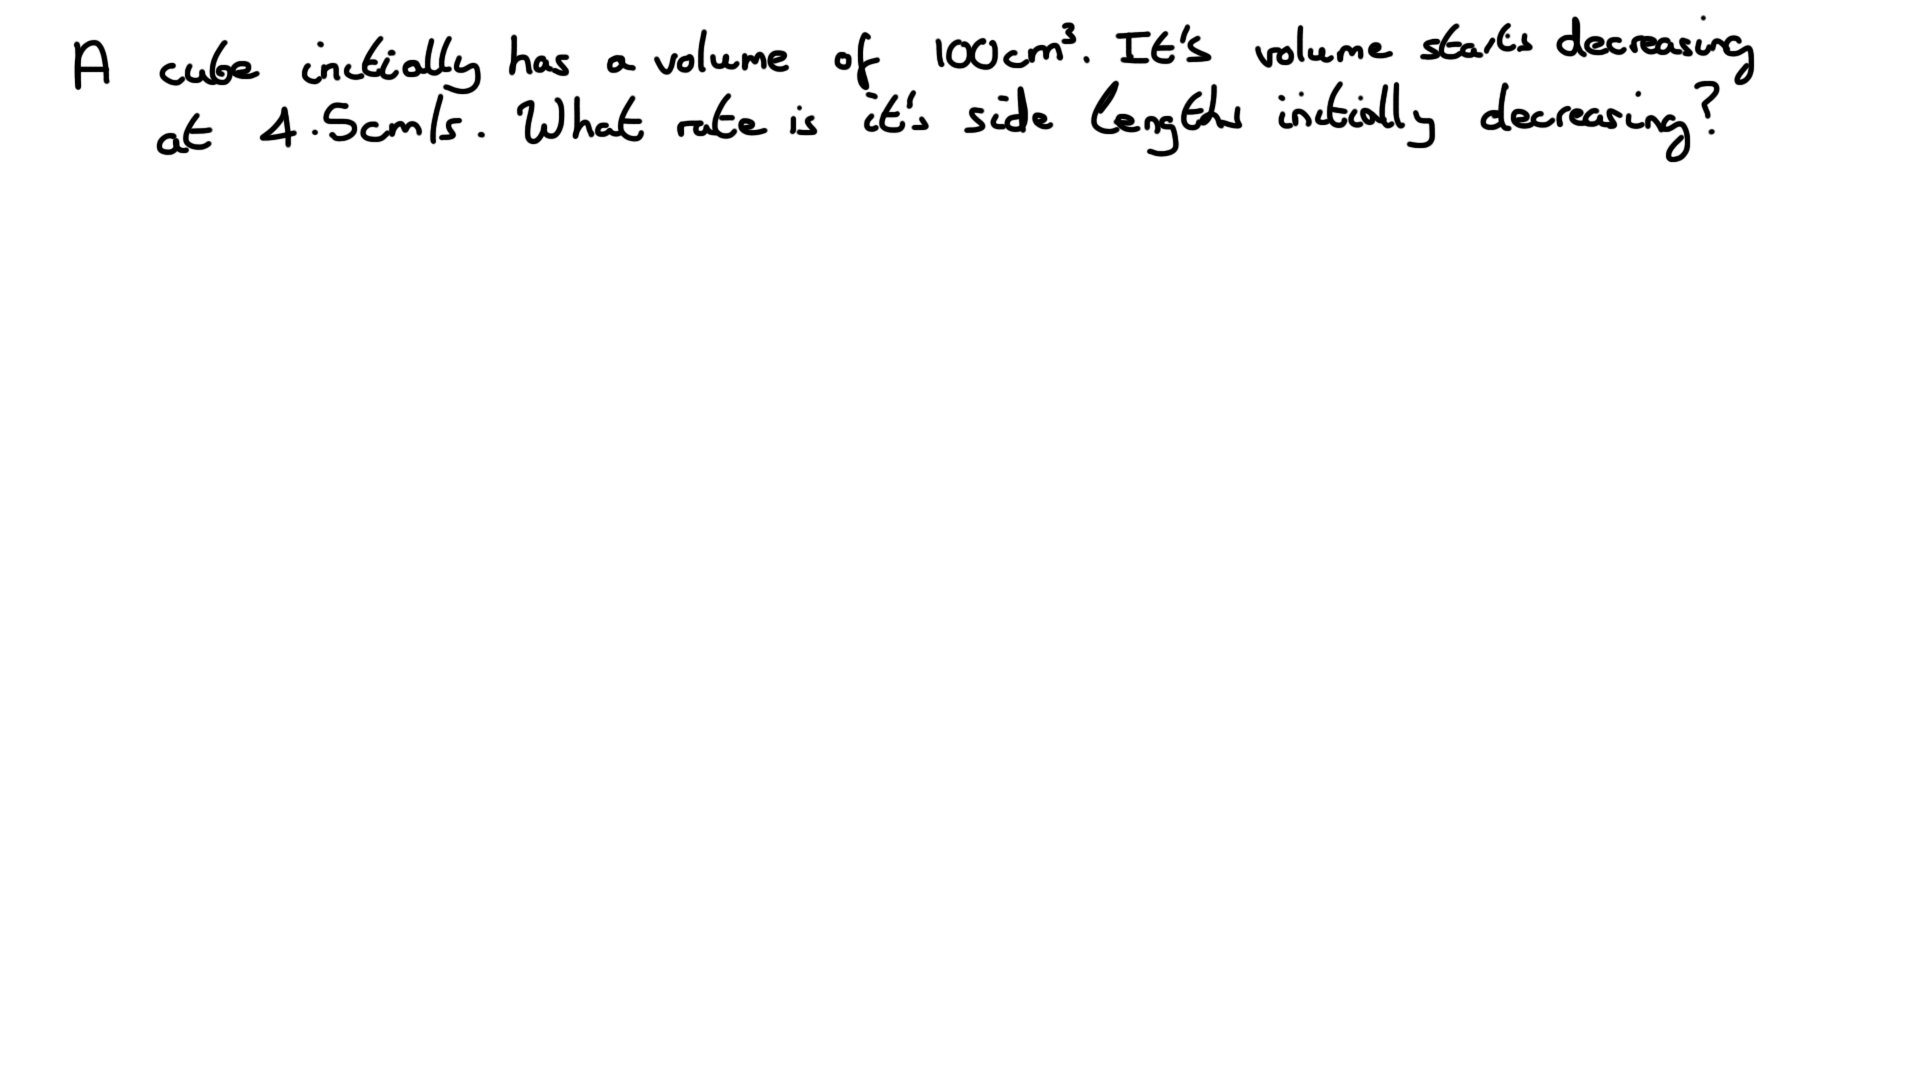 A cube initially has a volume of 100cm³. It's volume starts decreasing
at 4.5cm/s. What rate is it's side lengths initially decreasing?